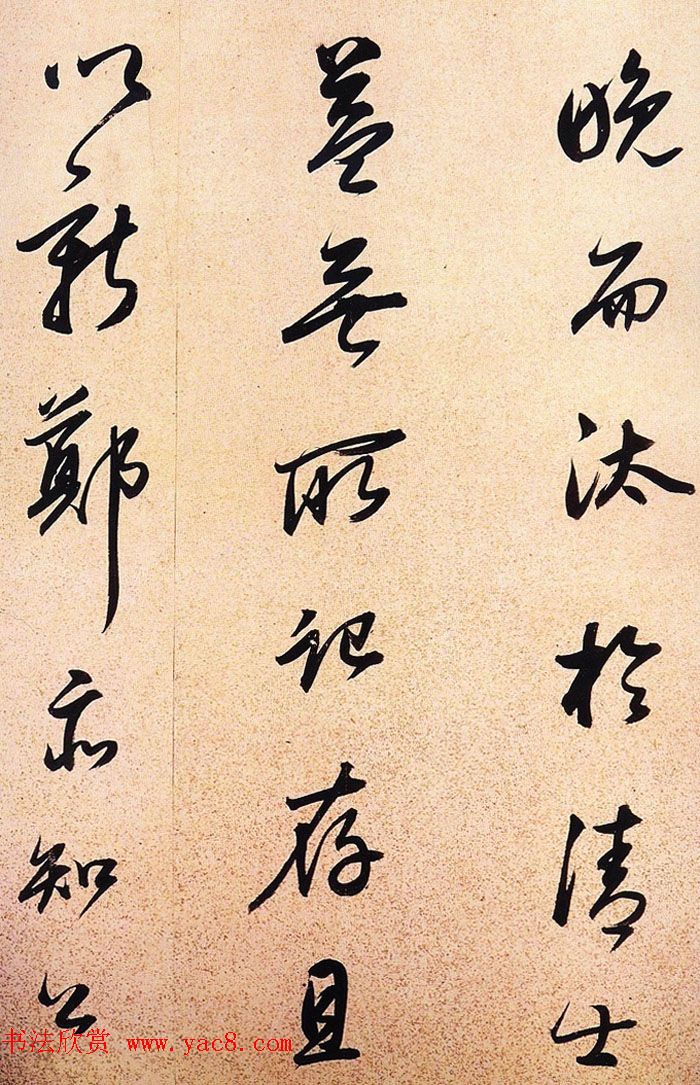 晚而汰於清士
蓋無所记存且
以新鄭亦知公
书法欣赏 www.yac8.com